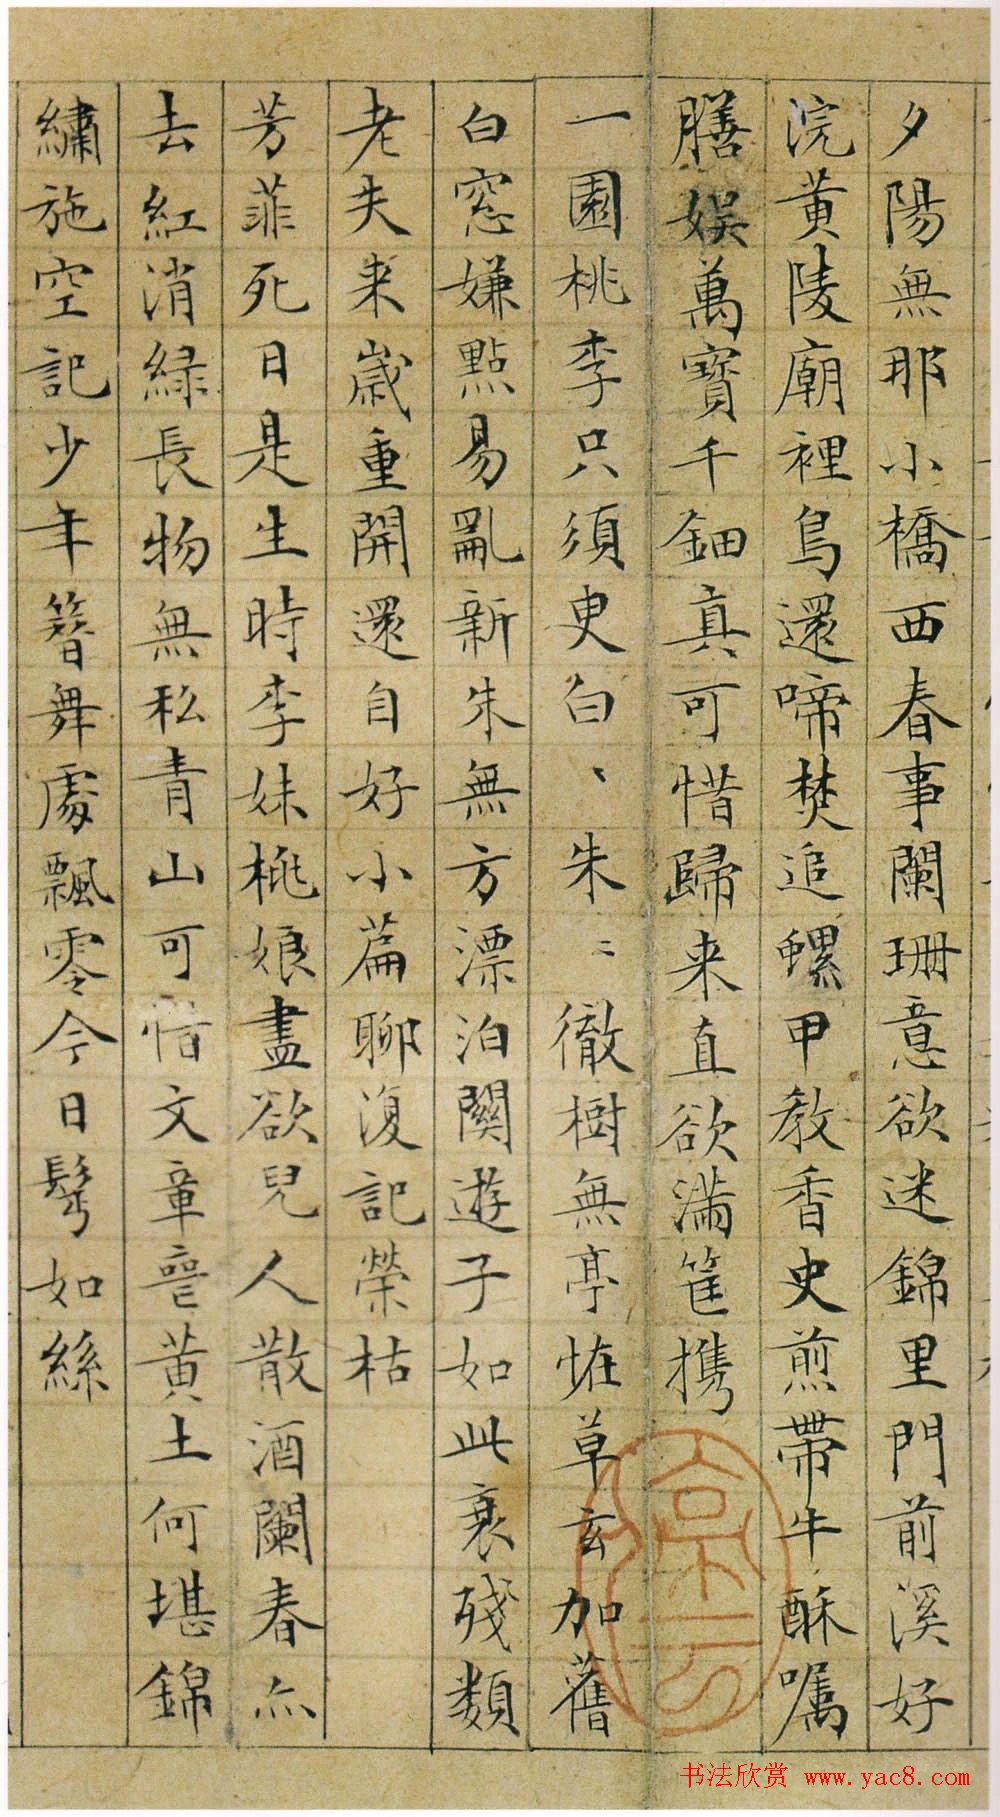 夕陽無那小橋西春事闌珊意欲迷錦里門前溪好
浣黄陵廟裡鳥還啼焚追螺甲教香史煎帶牛酥嘱
膳娱萬寶千鈿真可惜歸来直欲满筐携
一園桃李只須臾白丶朱〻徹樹無亭恠草玄加舊
白窓嫌點易亂新朱無方漂泊關遊子如此衰殘類
老夫来歲重開還自好小篇聊復記榮枯
芳菲死日是生時李妹桃娘盡欲兒人散酒闌春亦
去紅消緑長物無私青山可惜文章喪黄土何堪錦
繡施空記少年簪舞處飄零今日鬢如絲
书法欣赏 www.yac8.com